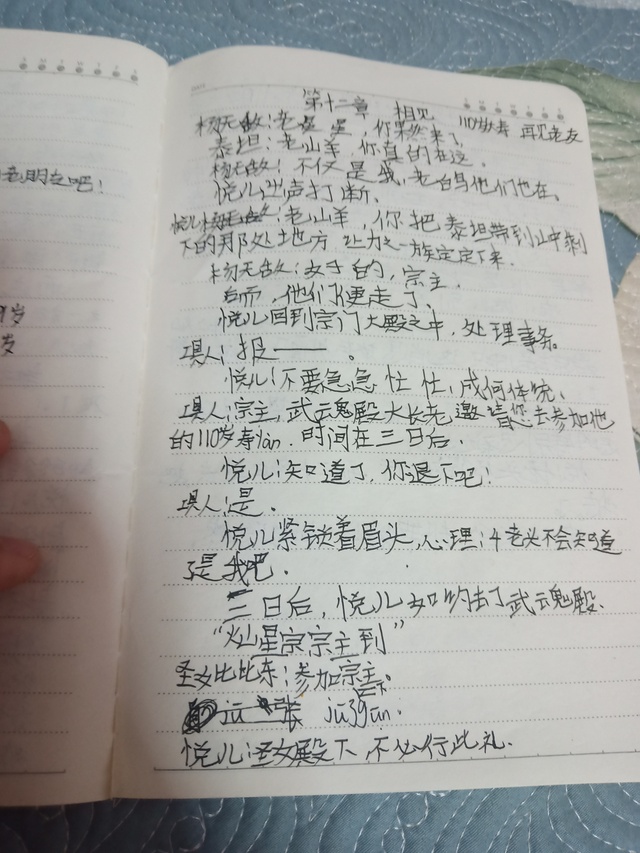 老朋友吧！
岁
岁
第十二章 相见 110岁寿 再见老友
杨无敌：老星星，你果然来了
泰坦：老山羊，你真的在这．
杨无敌：不仅是我，老白鸟他们也在、
悦儿出声打断、
悦儿：老山羊，你把泰坦带到山中剩
下的那处地方 让力之一族定定下来．
杨无敌：好的，宗主．
后而，他们便走了、
悦儿回到宗门大殿之中，处理事条。
具人：报——。
悦儿：不要急急忙忙，成何体统、
具人：宗主，武云魂殿大长老邀请您去参加他
的110岁寿yàn．时间在三日后．
悦儿：知道了，你退下吧！
具人：是．
悦儿紧锁着眉头，心理：千老头不会知道
了是我吧．
三日后，悦儿如约去了武魂殿．
“灿星宗宗主到”
圣女比比东：参加宗主。
悦儿：圣女殿下，不必行此礼．